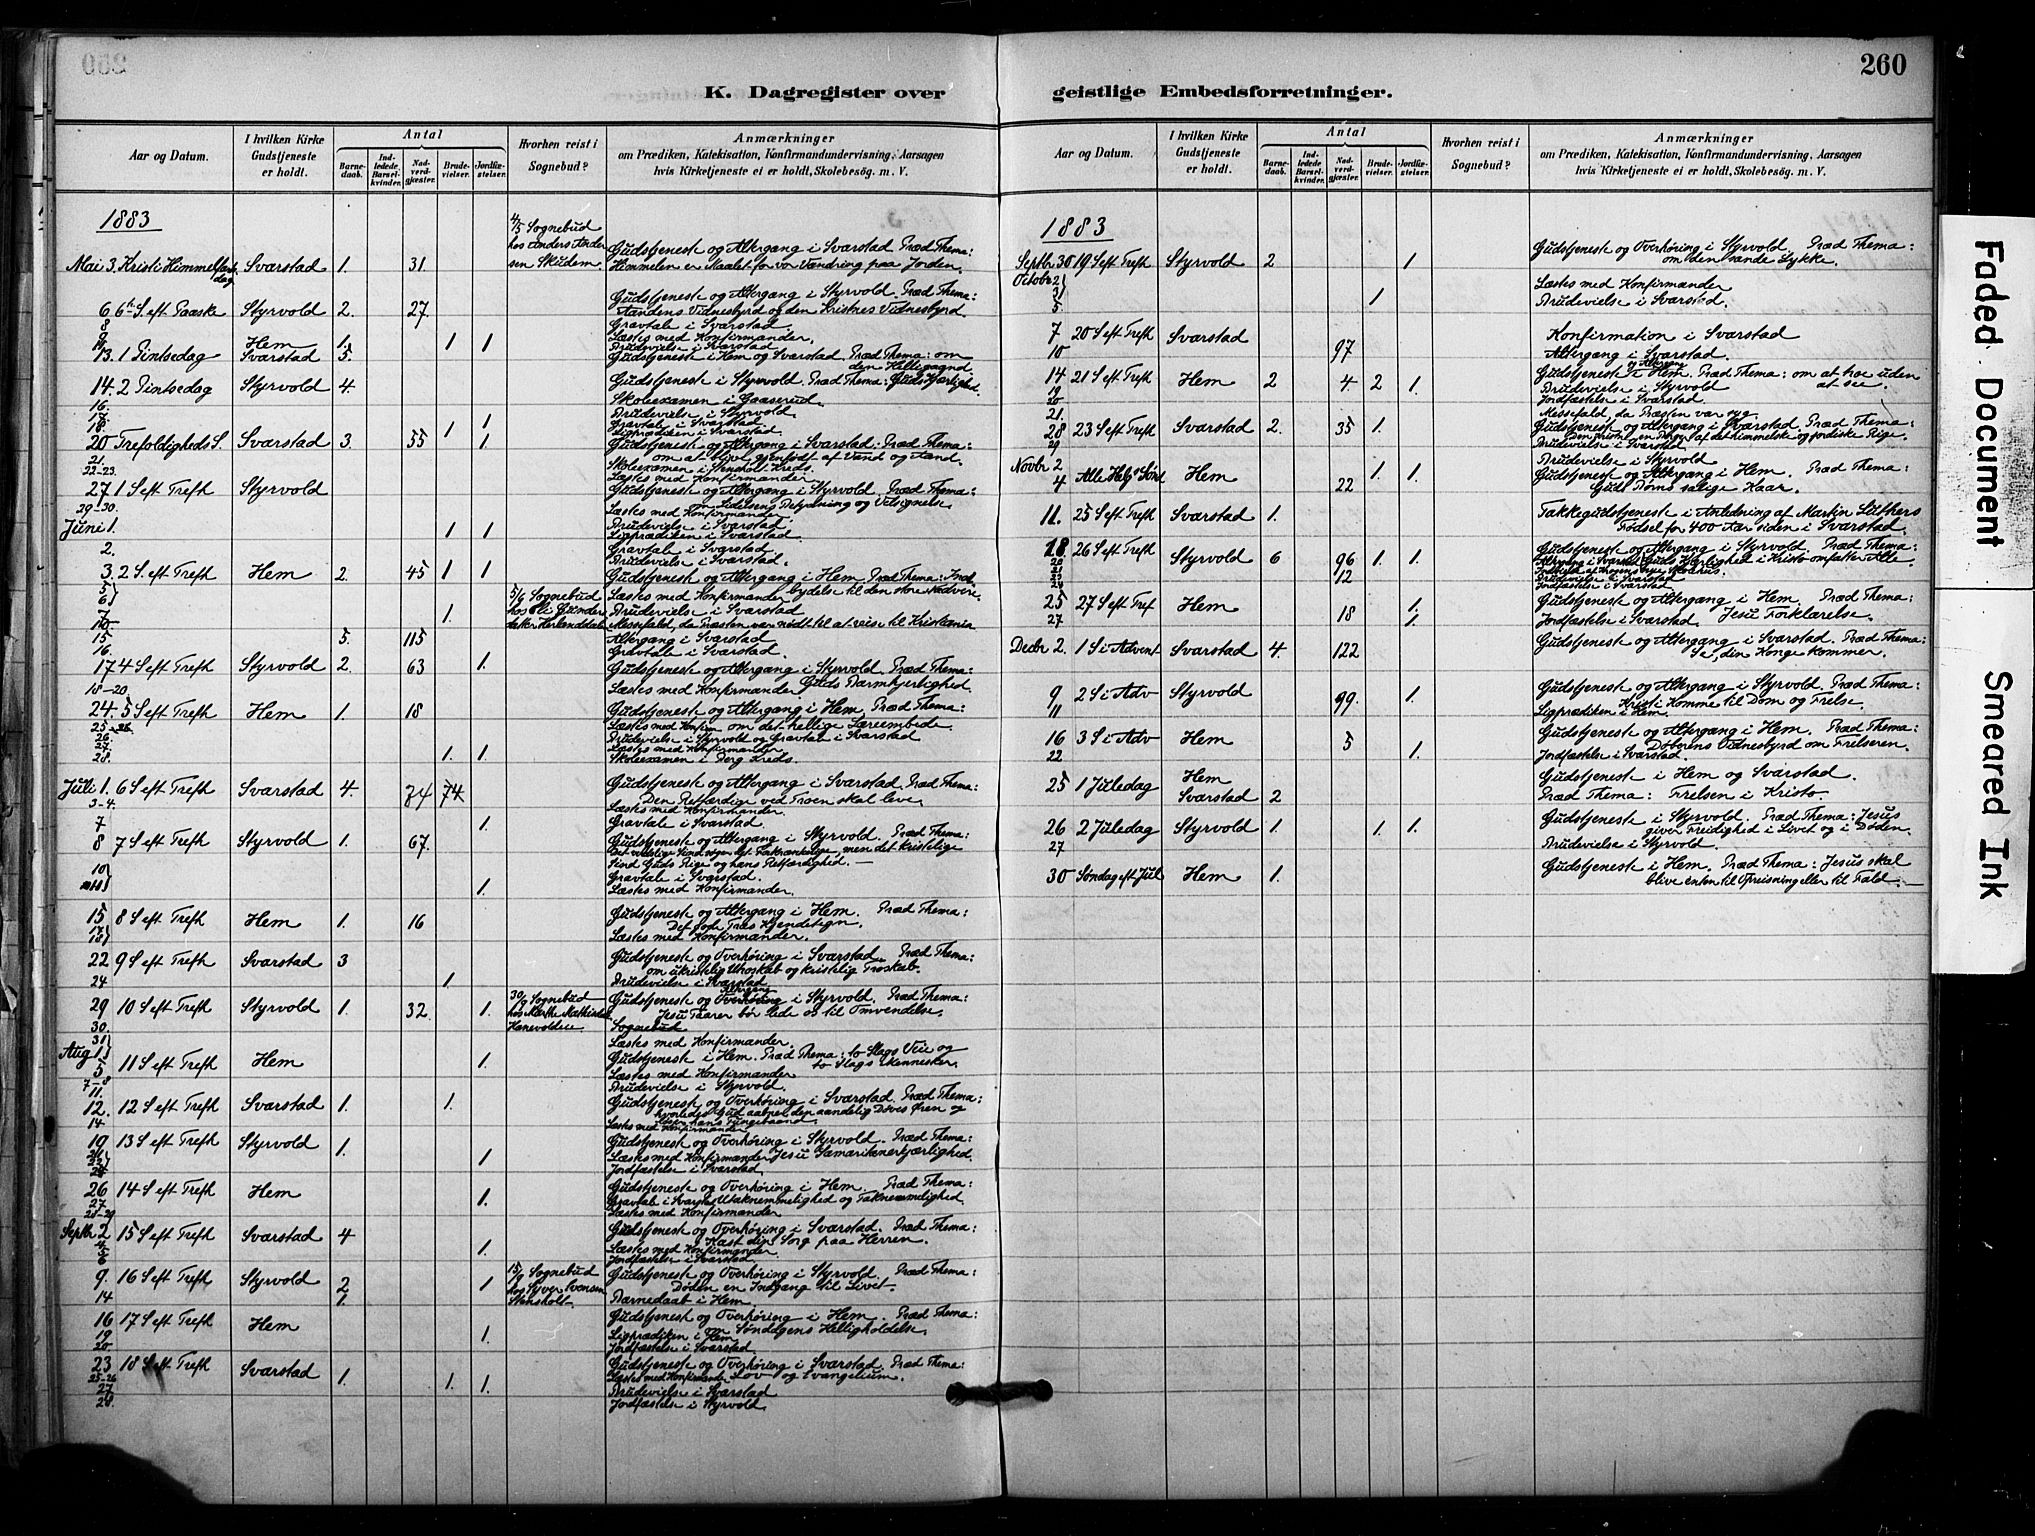 260
K. Dagregister over geistlige Embedsforretninger.
Aar og Datum.
I hvilken Kirke Gudstjeneste er holdt.
Antal
Barnedaab.
Indledede Barselkvinder.
Nadverdgjæster.
Brudevielser.
Jordfæstelser.
Hvorhen reist i Sognebud?
Anmærkninger
om Prædiken, Katekisation, Konfirmandundervisning, Aarsagen
hvis Kirketjeneste ei er holdt, Skolebesøg. m. V.
1883
Mai 3. Kristi Himmelfartsdag Svarstad 1. 31. 4/5 Sognebud hos Anders Andersen Gudstjeneste og Altergang i Svarstad. Præd Thema:
Himmelen er Maalet for vor Vandring paa Jorden.
6 6te S. eft Paaske Styrvold 2. 27. Gudstjeneste og Altergang i Styrvold. Præd Thema:
Aandens Vidnesbyrd og den Kristnes Vidnesbyrd.
8 Gravtale i Svarstad.
9 Læstes med Konfirmander.
Brudevielse i Svarstad
13. 1 Pintsedag Hem 1. Svarstad 5. 1 1 Gudstjeneste i Hem og Svarstad Præd Thema: om
den Helligaand
14. 2 Pintsedag Styrvold 4. Gudstjeneste i Styrvold. Præd Thema: Guds Kjærlighed.
16. Skoleexamen i Gaaserud.
17. Brudevielse i Styrvold.
18. Gravtale i Svarstad
Ligprædiken i Svarstad
20 Trefoldigheds S. Svarstad 3 55 1 1 Gudstjeneste og Altergang i Svarstad. Præd Thema:
om at blive gjenfødt af Vand og Aand.
21. Skoleexamen i Stensholt Kreds.
22-23. Læstes med Konfirmander
27 1 S eft Trefh Styrvold Gudstjeneste og Altergang i Styrvold. Præd Thema:
Lidelsens Betydning og Velsignelse
29-30. Læstes med Konfirmander
Juni 1. 1 1 Brudevielse i Svarstad
Ligprædiken i Svarstad.
2. Gravtale i Svarstad
Brudevielse i Svarstad.
3. 2 S. eft Trefh Hem 2. 45 1 1 Gudstjeneste og Altergang i Hem Præd Thema: Indbydelse til den store Nadvere.
5 6 5/6 Sognebud Læstes med Konfirmander
7 1. Brudevielse i Svarstad
10 Messefald, da Præsten var nødt til at reise til Kristiania
15 5. 115 Altergang i Svarstad
16. Gravtale i Svarstad.
17 4 S eft Trefh Styrvold 2. 63 1. Gudstjeneste og Altergang i Styrvold. Præd Thema:
Guds Barmhjertighed.
18-20. Læstes med Konfirmander
24. 5 S eft Trefh Hem 1. 18 Gudstjeneste og Altergang i Hem Præd Thema:
om det hellige Læreembede
25-26 Læstes med Konfirm
26. Brudevielse i Styrvold og Gravtale i Svarstad
27. Læstes med Konfirmander
28. 1. 1. Skoleexamen i Berg Kreds.
Juli 1. 6 S eft Trefh Svarstad 4. 84 74 Gudstjeneste og Altergang i Svarstad. Præd Thema:
Den Retfærdige ved Troen skal leve.
3-4. Læstes med Konfirmander.
7 1. Gravtale i Svarstad
8 7 S eft Trefh Styrvold 1. 67. Gudstjeneste og Altergang i Styrvold. Præd Thema:
men det kristelige
Sind Guds Rige og hans Retfærdighed. —
10 Gravtale i Svarstad.
1. Læstes med Konfirmander.
15 8 S eft Trefh Hem 1. 16 Gudstjeneste og Altergang i Hem. Præd Thema:
Det gode Træs Kjendetegn.
17 18 Læstes med Konfirmander.
22 9 S eft Trefh Svarstad 3 Gudstjeneste og Overhøring i Svarstad Præd Thema:
om ukristelig Utroskab og kristelig Troskab.
24 1. Brudevielse i Svarstad
29 10 S eft Trefh Styrvold 1. 32. 1. Sognebud Gudstjeneste og Altergang i Styrvold. Præd Thema:
Jesu Taarer bør lede os til Omvendelse.
30. Sognebud
31 Aug 1 Læstes med Konfirmander.
5 11 S eft Trefh Hem 1. Gudstjeneste i Hem. Præd Thema: to Slags Veie og
to Slags Mennesker.
7-8 Læstes med Konfirmander
11. Brudevielse i Styrvold.
12. 12 S eft Trefh Svarstad 1. 1. Gudstjeneste og Overhøring i Svarstad. Præd Thema:
hvorledes Gud aabner den aandelig Døves Øren og
løser hans Tungebaand.
14 Læstes med Konfirmander
19 13 S eft Trefh Styrvold 1. Gudstjeneste og Overhøring i Styrvold. Præd Thema:
Læstes med Konfirmander Jesu Samaritanerkjærlighed.
1 Jordfæstelse i Svarstad.
26 14 S eft Trefh Hem 1. Gudstjeneste og Overhøring i Hem. Præd Thema:
27. Gravtale i Svarstad Utaknemmelighed og Taknemmelighed
28-29 Læstes med Konfirmander
Septbr 2 15 S eft Trefh Svarstad 4 1. Gudstjeneste og Overhøring i Svarstad. Præd Thema:
Kast din Sorg paa Herren.
4 5 Læstes med Konfirmander
6 Jordfæstelse i Svarstad
9. 16 S eft Trefh Styrvold 2 1 15/9 Sognebud hos Syver Svensen Stensholt Gudstjeneste og Overhøring i Styrvold. Præd Thema:
Døden en Indgang til Livet.
14 1. Barnedaab i Hem.
16 17 S eft Trefh Hem 1. Gudstjeneste og Overhøring i Hem. Præd Thema:
19 Ligprædiken i Hem Søndagens Helligholdelse.
20 Jordfæstelse i Svarstad
23 18 S eft Trefh Svarstad 1. 1. 1. Gudstjeneste og Overhøring i Svarstad. Præd Thema:
25-26 Læstes med Konfirmander Lov og Evangelium.
27 Brudevielse i Svarstad
28. Jordfæstelse i Styrvold.
Aar og Datum.
I hvilken Kirke Gudstjeneste er holdt.
Antal
Barnedaab.
Indledede Barselkvinder.
Nadverdgjæster.
Brudevielser.
Jordfæstelser.
Hvorhen reist i Sognebud?
Anmærkninger
om Prædiken, Katekisation, Konfirmandundervisning, Aarsagen
hvis Kirketjeneste ei er holdt, Skolebesøg. m. V.
1883
Septbr 30 19 S eft Trefh Styrvold 2 1. Gudstjeneste og Overhøring i Styrvold. Præd Thema:
om den sande Lykke.
October 2 3 Læstes med Konfirmander
5 1 Brudevielse i Svarstad.
7 20 S eft Trefh Svarstad Konfirmation i Svarstad
10 97 Altergang i Svarstad.
14 21 S eft Trefh Hem 2 4 2 1. Gudstjeneste og Altergang i Hem. Præd Thema: om at troe uden
at see.
19 Brudevielse i Styrvold
20 Jordfæstelse i Svarstad.
21. Messefald, da Præsten var syg.
28 23 S eft Trefh Svarstad 2. 35 1. Gudstjeneste og Altergang i Svarstad. Præd Thema:
Den Kristne en Borger af det himmelske og jordiske Rige.
29 Brudevielse i Svarstad
Novbr 2 Brudevielse i Styrvold
4 Alle Helg Sønd Hem 22 1. 1. Gudstjeneste og Altergang i Hem. Præd Thema:
Guds Børns salige Kaar.
11. 25 S eft Trefh Svarstad 1. Takkegudstjeneste i Anledning af Martin Luthers
Fødsel for 400 Aar siden i Svarstad.
18. 26 S eft Trefh Styrvold 6 96 1. 1. Gudstjeneste og Altergang i Styrvold. Præd Thema:
12 Altergang i Svarstad Guds Kjærlighed i Kristo omfatter Alle.
Brudevielse i Svarstad
Jordfæstelse i Svarstad.
25 27 S eft Tref Hem 18 1. Gudstjeneste og Altergang i Hem. Præd Thema:
27 1. Jordfæstelse i Svarstad. Jesu Forklarelse.
Decbr 2. 1 S i Advent Svarstad 4. 122 Gudstjeneste og Altergang i Svarstad. Præd Thema:
Se, din Konge kommer.
9 2 S i Adv Styrvold 99. 1. Gudstjeneste og Altergang i Styrvold. Præd Thema:
Kristi Komme til Dom og Frelse.
11 Ligprædiken i Hem.
16 3 S i Adv Hem 5 Gudstjeneste og Altergang i Hem. Præd Thema:
Døberens Vidnesbyrd om Frelseren.
22 1. Jordfæstelse i Svarstad.
25 1 Juledag Hem Svarstad 2 Gudstjeneste i Hem og Svarstad.
Præd Thema: Frelsen i Kristo.
26 2 Juledag Styrvold 1. 1. 1. Gudstjeneste i Styrvold. Præd Thema: Jesus
giver Freidighed i Livet og i Døden.
27 Brudevielse i Styrvold.
30 Søndag eft Jul Hem 1. Gudstjeneste i Hem. Præd Thema: Jesus skal
blive enten til Opreisning eller til Fald. —
Faded Document
Smeared Ink